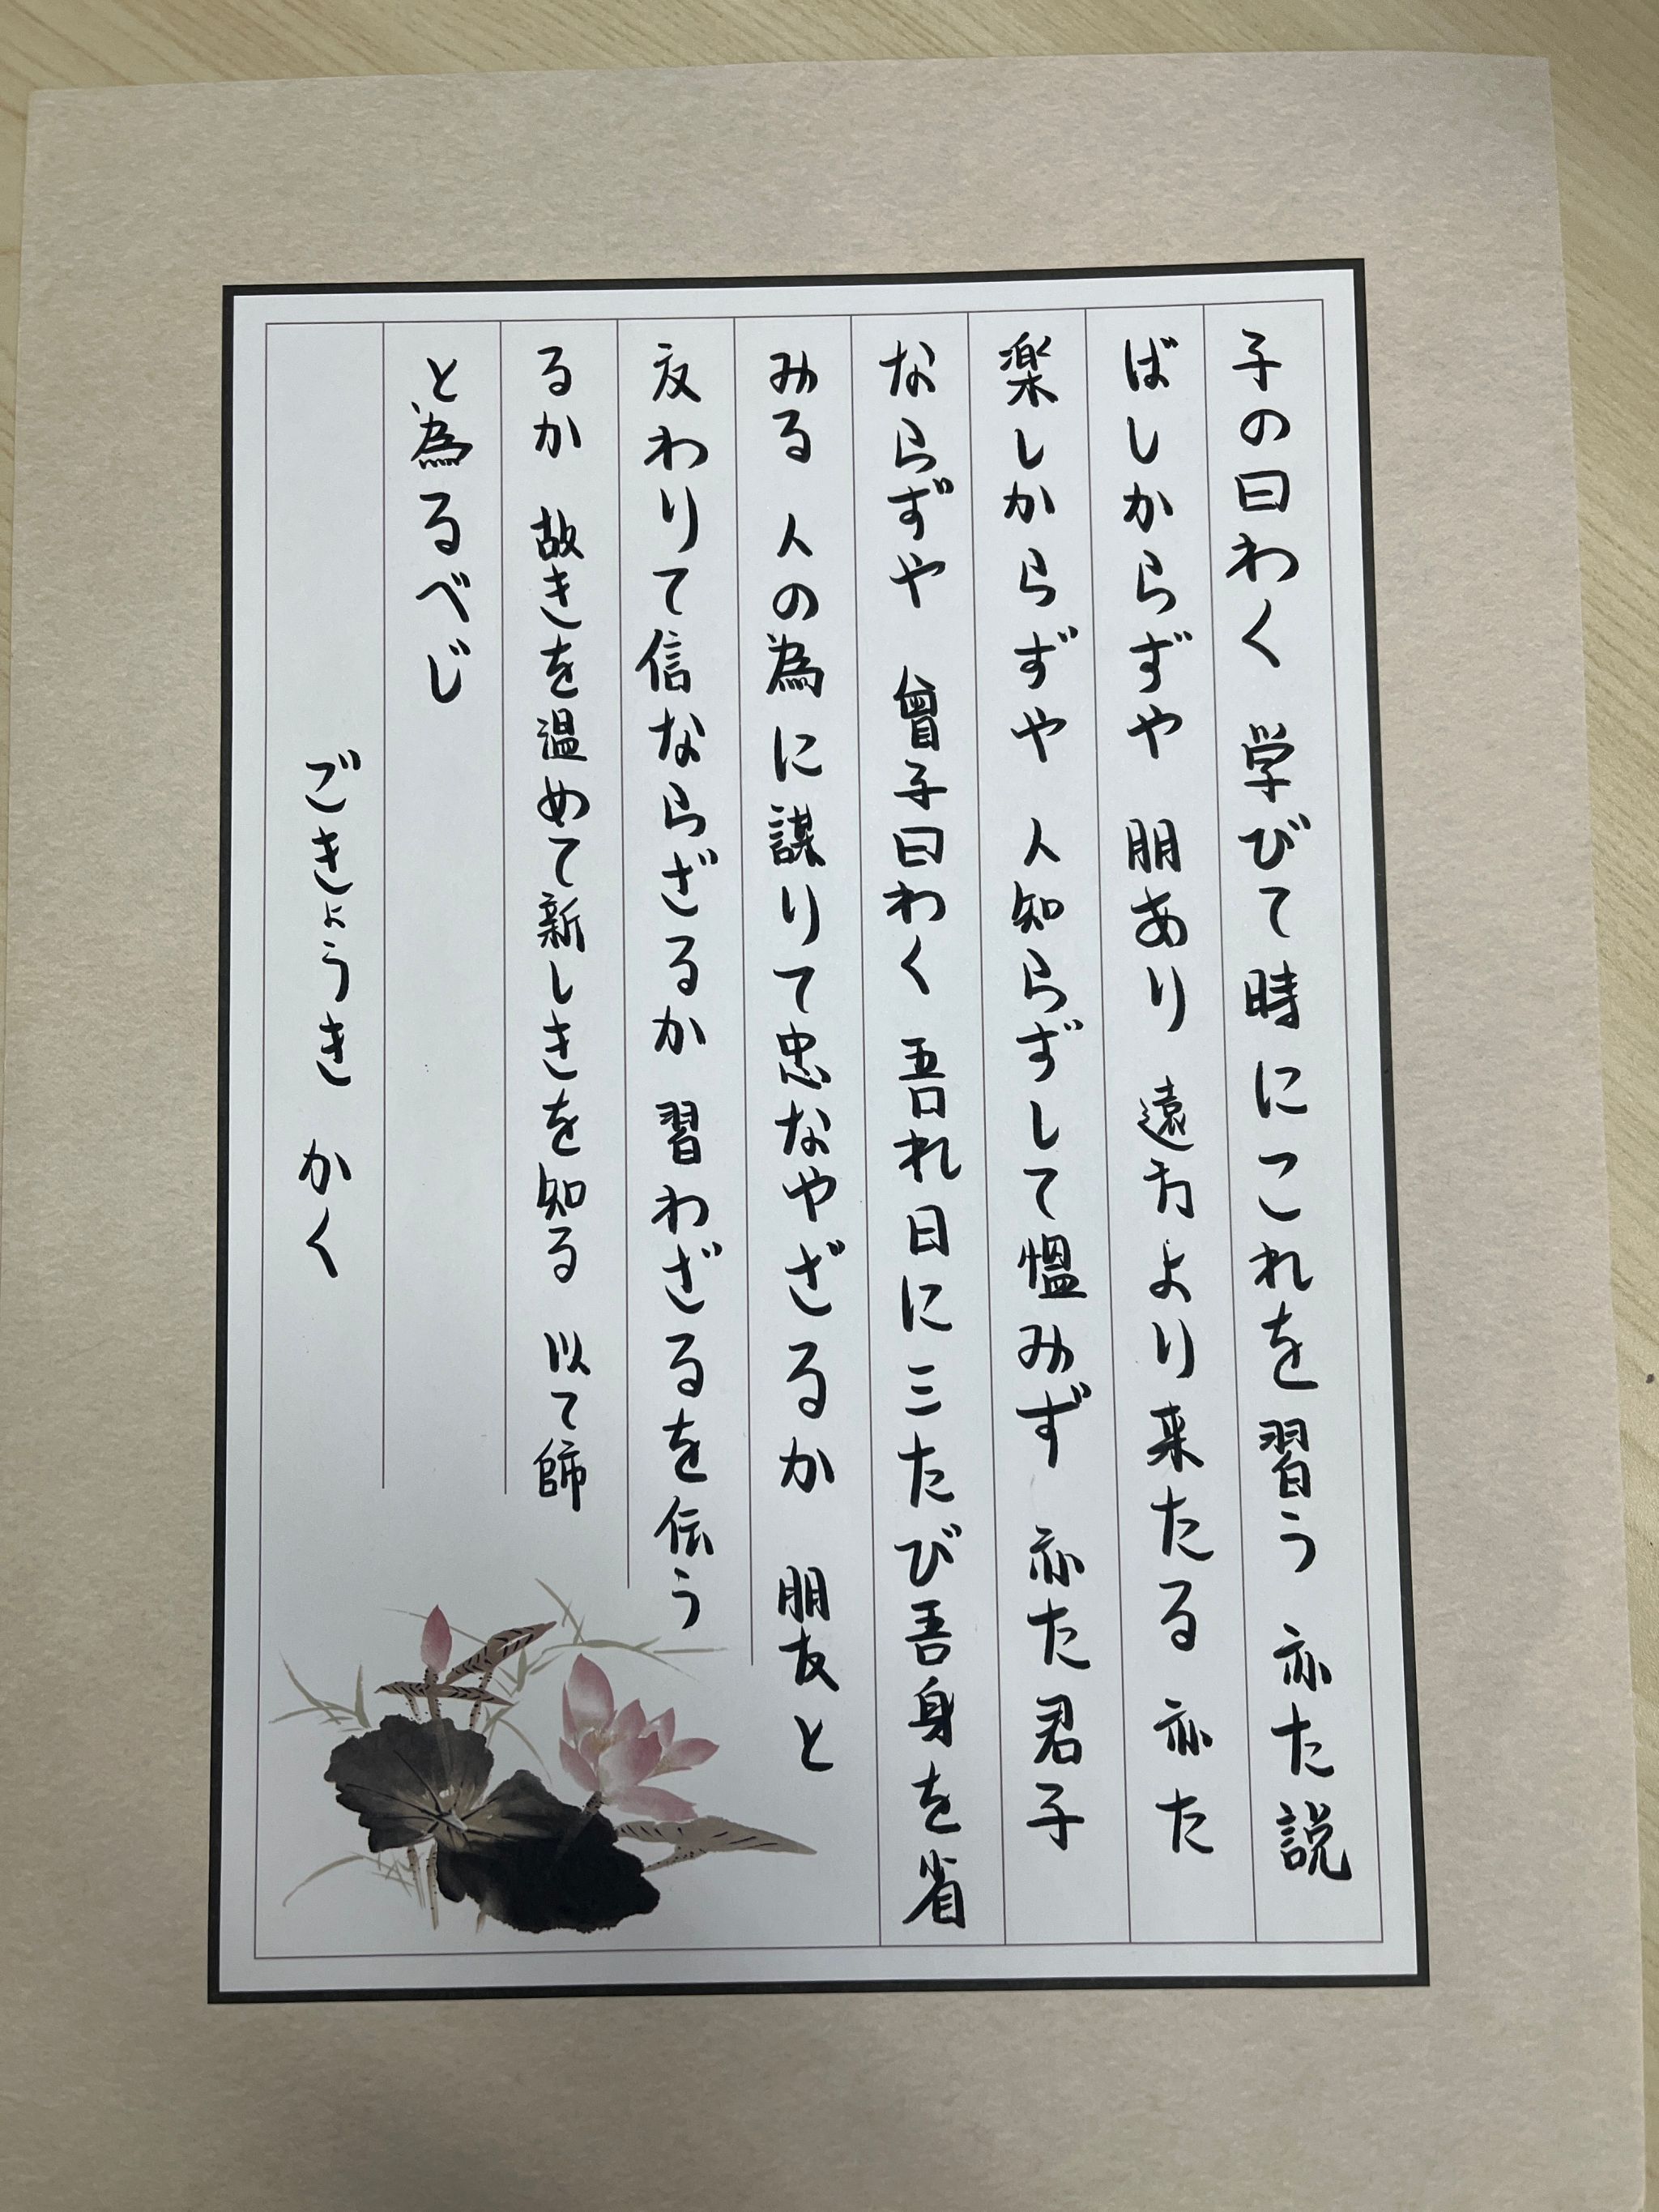 子の曰わく 学びて時にこれを習う 亦た説
ばしからずや 朋あり 遠方より来たる 亦た
楽しからずや 人知らずして慍みず 亦た君子
ならずや 曾子曰わく 吾れ日に三たび吾身を省
みる 人の為に謀りて忠なやざるか 朋友と
交わりて信ならざるか 習わざるを伝う
るか 故きを温めて新しきを知る 以て師
と為るべじ
ごきょうき かく